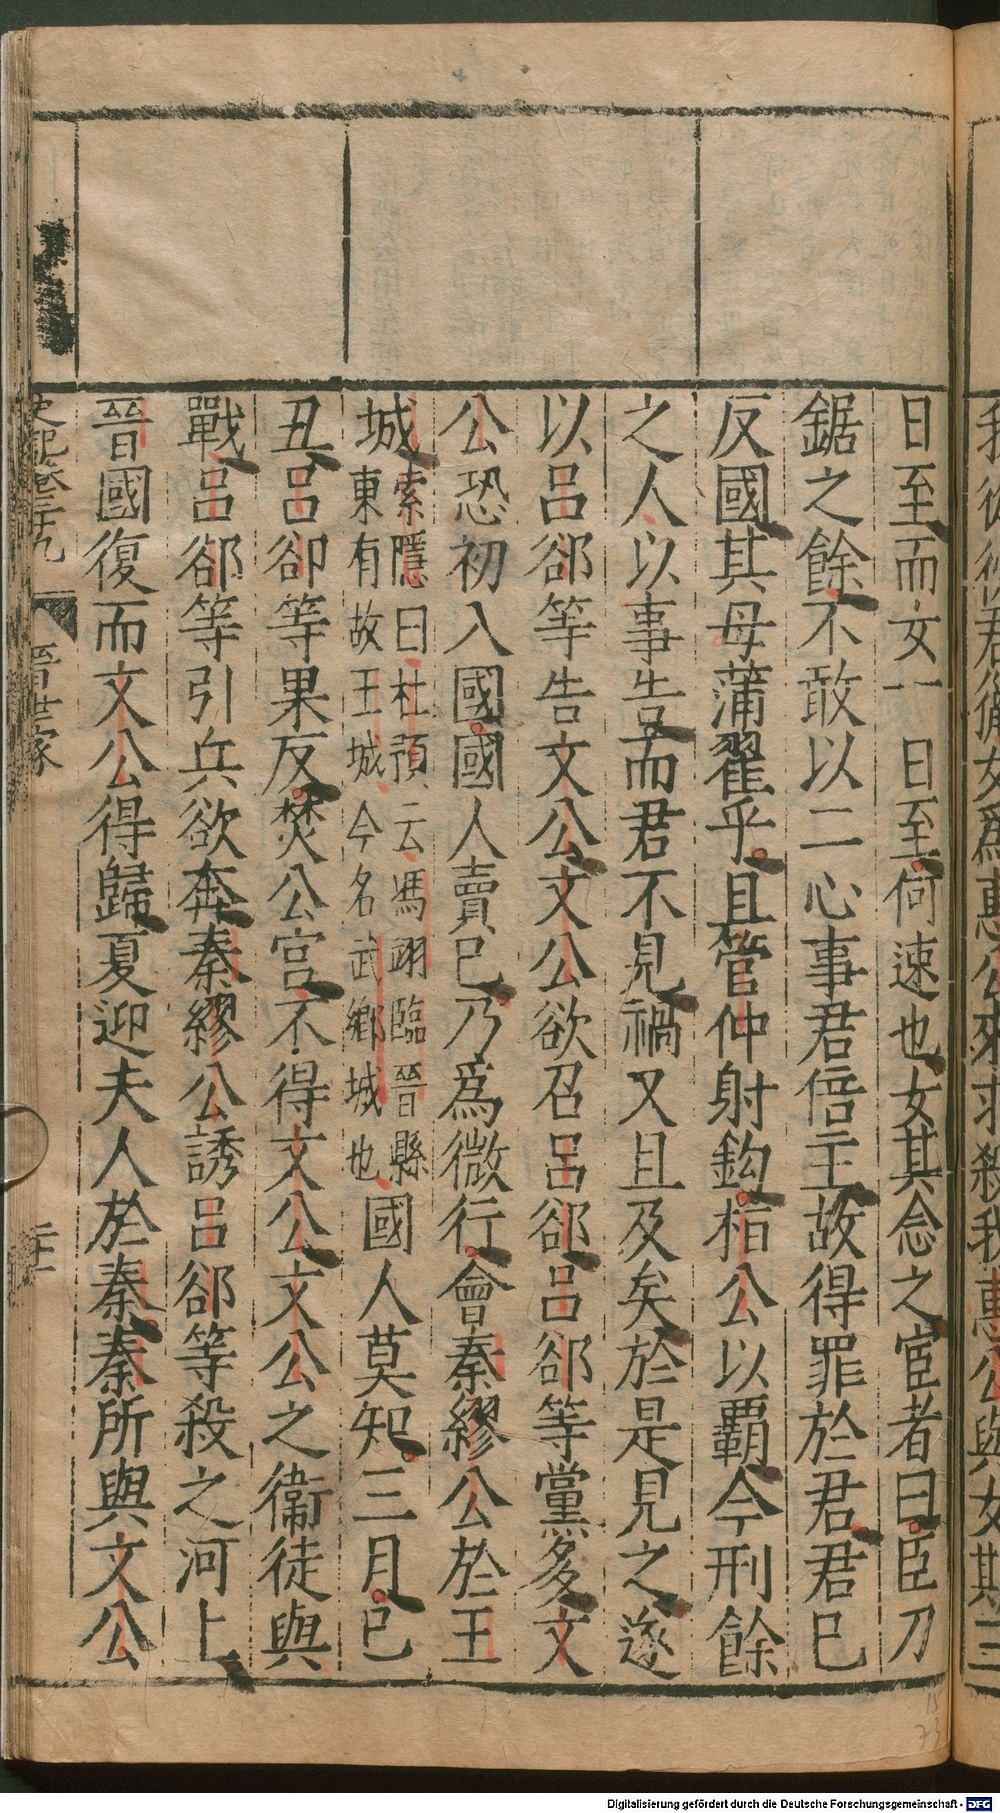 我從狄君獵女爲惠公來求殺我惠公與女期三
日至而女一日至何速也女其念之宦者曰臣刀
鋸之餘不敢以二心事君倍主故得罪於君君巳
反國其毋蒲翟乎且管仲射鈎桓公以霸今刑餘
之人以事告而君不見禍又且及矣於是見之遂
以呂郤等告文公文公欲召呂郤呂郤等黨多文
公恐初入國國人賣巳乃爲微行會秦繆公於王
城
索隱曰杜預云馮翊臨晉縣
東有故王城今名武鄉城也
國人莫知三月巳
丑呂郤等果反焚公宮不得文公文公之衞徒與
戰呂郤等引兵欲奔秦繆公誘呂郤等殺之河上
晉國復而文公得歸夏迎夫人於秦秦所與文公
晉世家
Digitalisierung gefördert durch die Deutsche Forschungsgemeinschaft - DFG